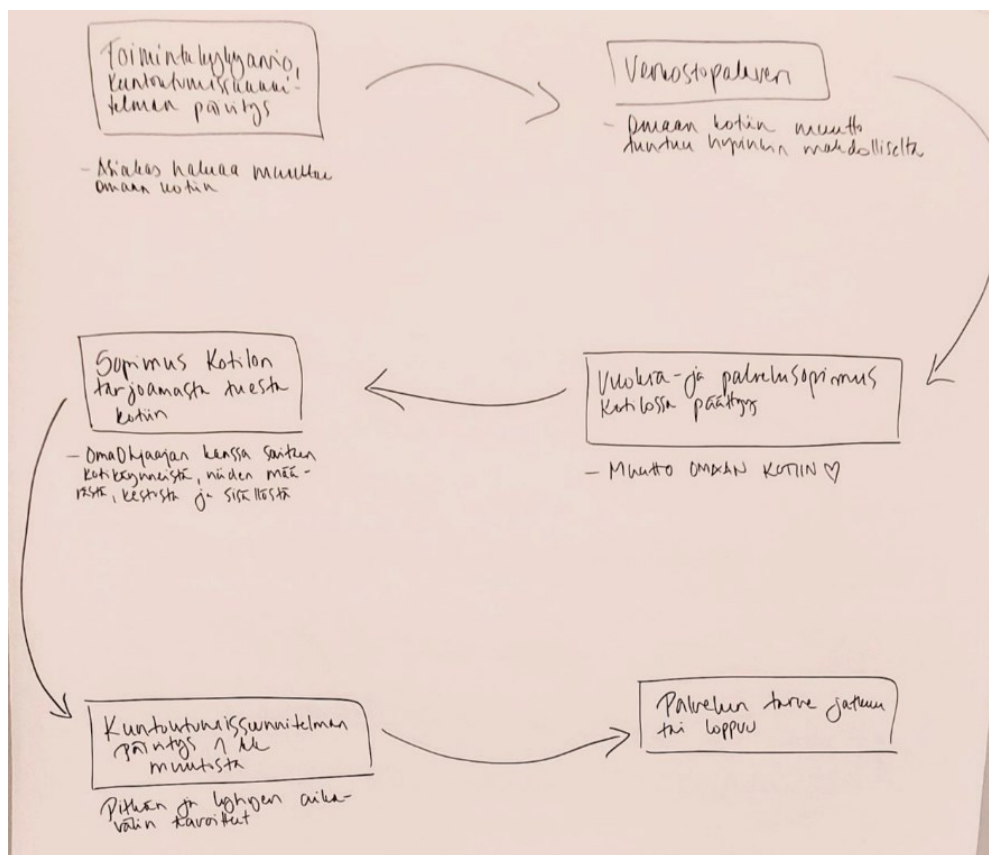 Toimintakykyarvio,
kuntoutumissuunni-
telman päivitys
- Asiakas haluaa muuttaa
omaan kotiin
Verkostopalaveri
- Omaan kotiin muutto
tuntuu hyvinkin mahdolliselta
Vuokra- ja palvelusopimus
Kotilossa päättyy
- Muutto OMAAN KOTIIN ♡
Sopimus Kotilon
tarjoamasta tuesta
kotiin
- OmaOhjaajan kanssa sovitaan
kotikäynneistä, niiden mää-
rästä, kestosta ja sisällöstä
Kuntoutumissuunnitelman
päivitys 1 kk
muutosta
Pitkän ja lyhyen aika-
välin tavoitteet
Palvelun tarve jatkuu
tai loppuu